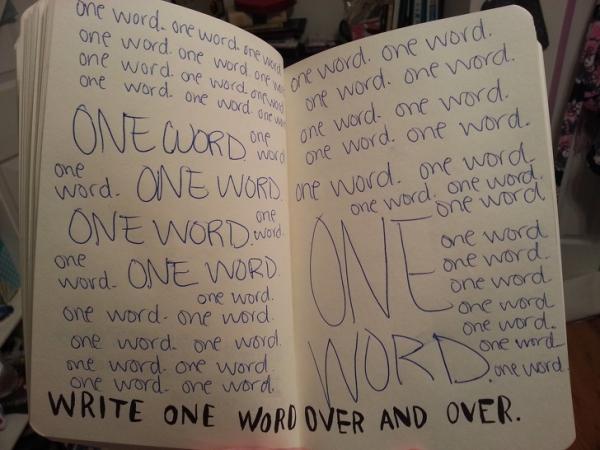 one word. one word. one word.
one word. one word. one word.
one word. one word. one word.
one word. one word. one word.
ONE WORD. one word
one word. ONE WORD.
ONE WORD. one word.
one word. ONE WORD.
one word.
one word. one word.
one word. one word.
one word. one word.
one word. one word.
one word. one word.
one word. one word.
one word. one word.
one word. one word.
one word. one word.
one word. one word.
one word
ONE WORD.
one word
one word.
one word
one word
one word.
one word.
one word.
WRITE ONE WORD OVER AND OVER.